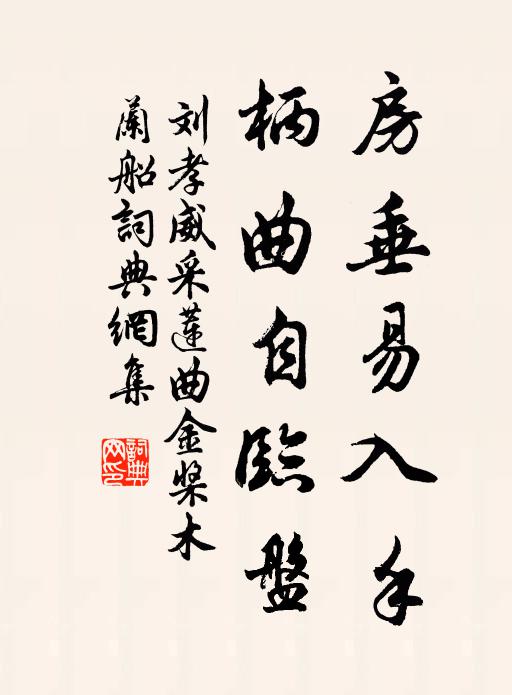 房垂易入手
柄曲自臨盤
刘孝威采蓮曲金槳木
蘭船詞典網集
詞典網印